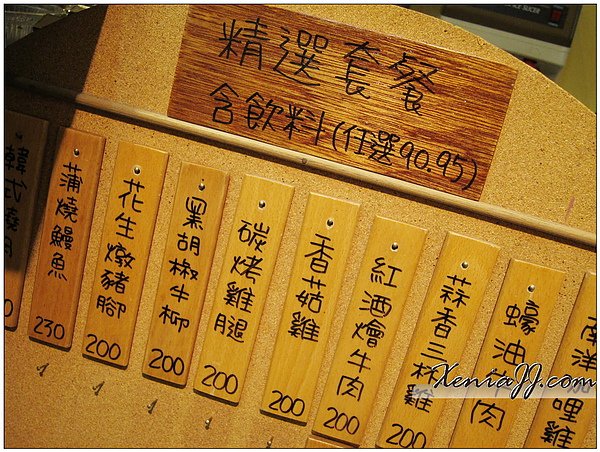 精選套餐
含飲料(任選90.95)
韓式燒肉
0
蒲燒鰻魚
230
花生燉豬腳
200
黑胡椒牛柳
200
碳烤雞腿
200
香菇雞
200
紅酒燴牛肉
200
蒜香三杯雞
200
蠔油牛肉
南洋咖哩雞
XeniaJJ.com